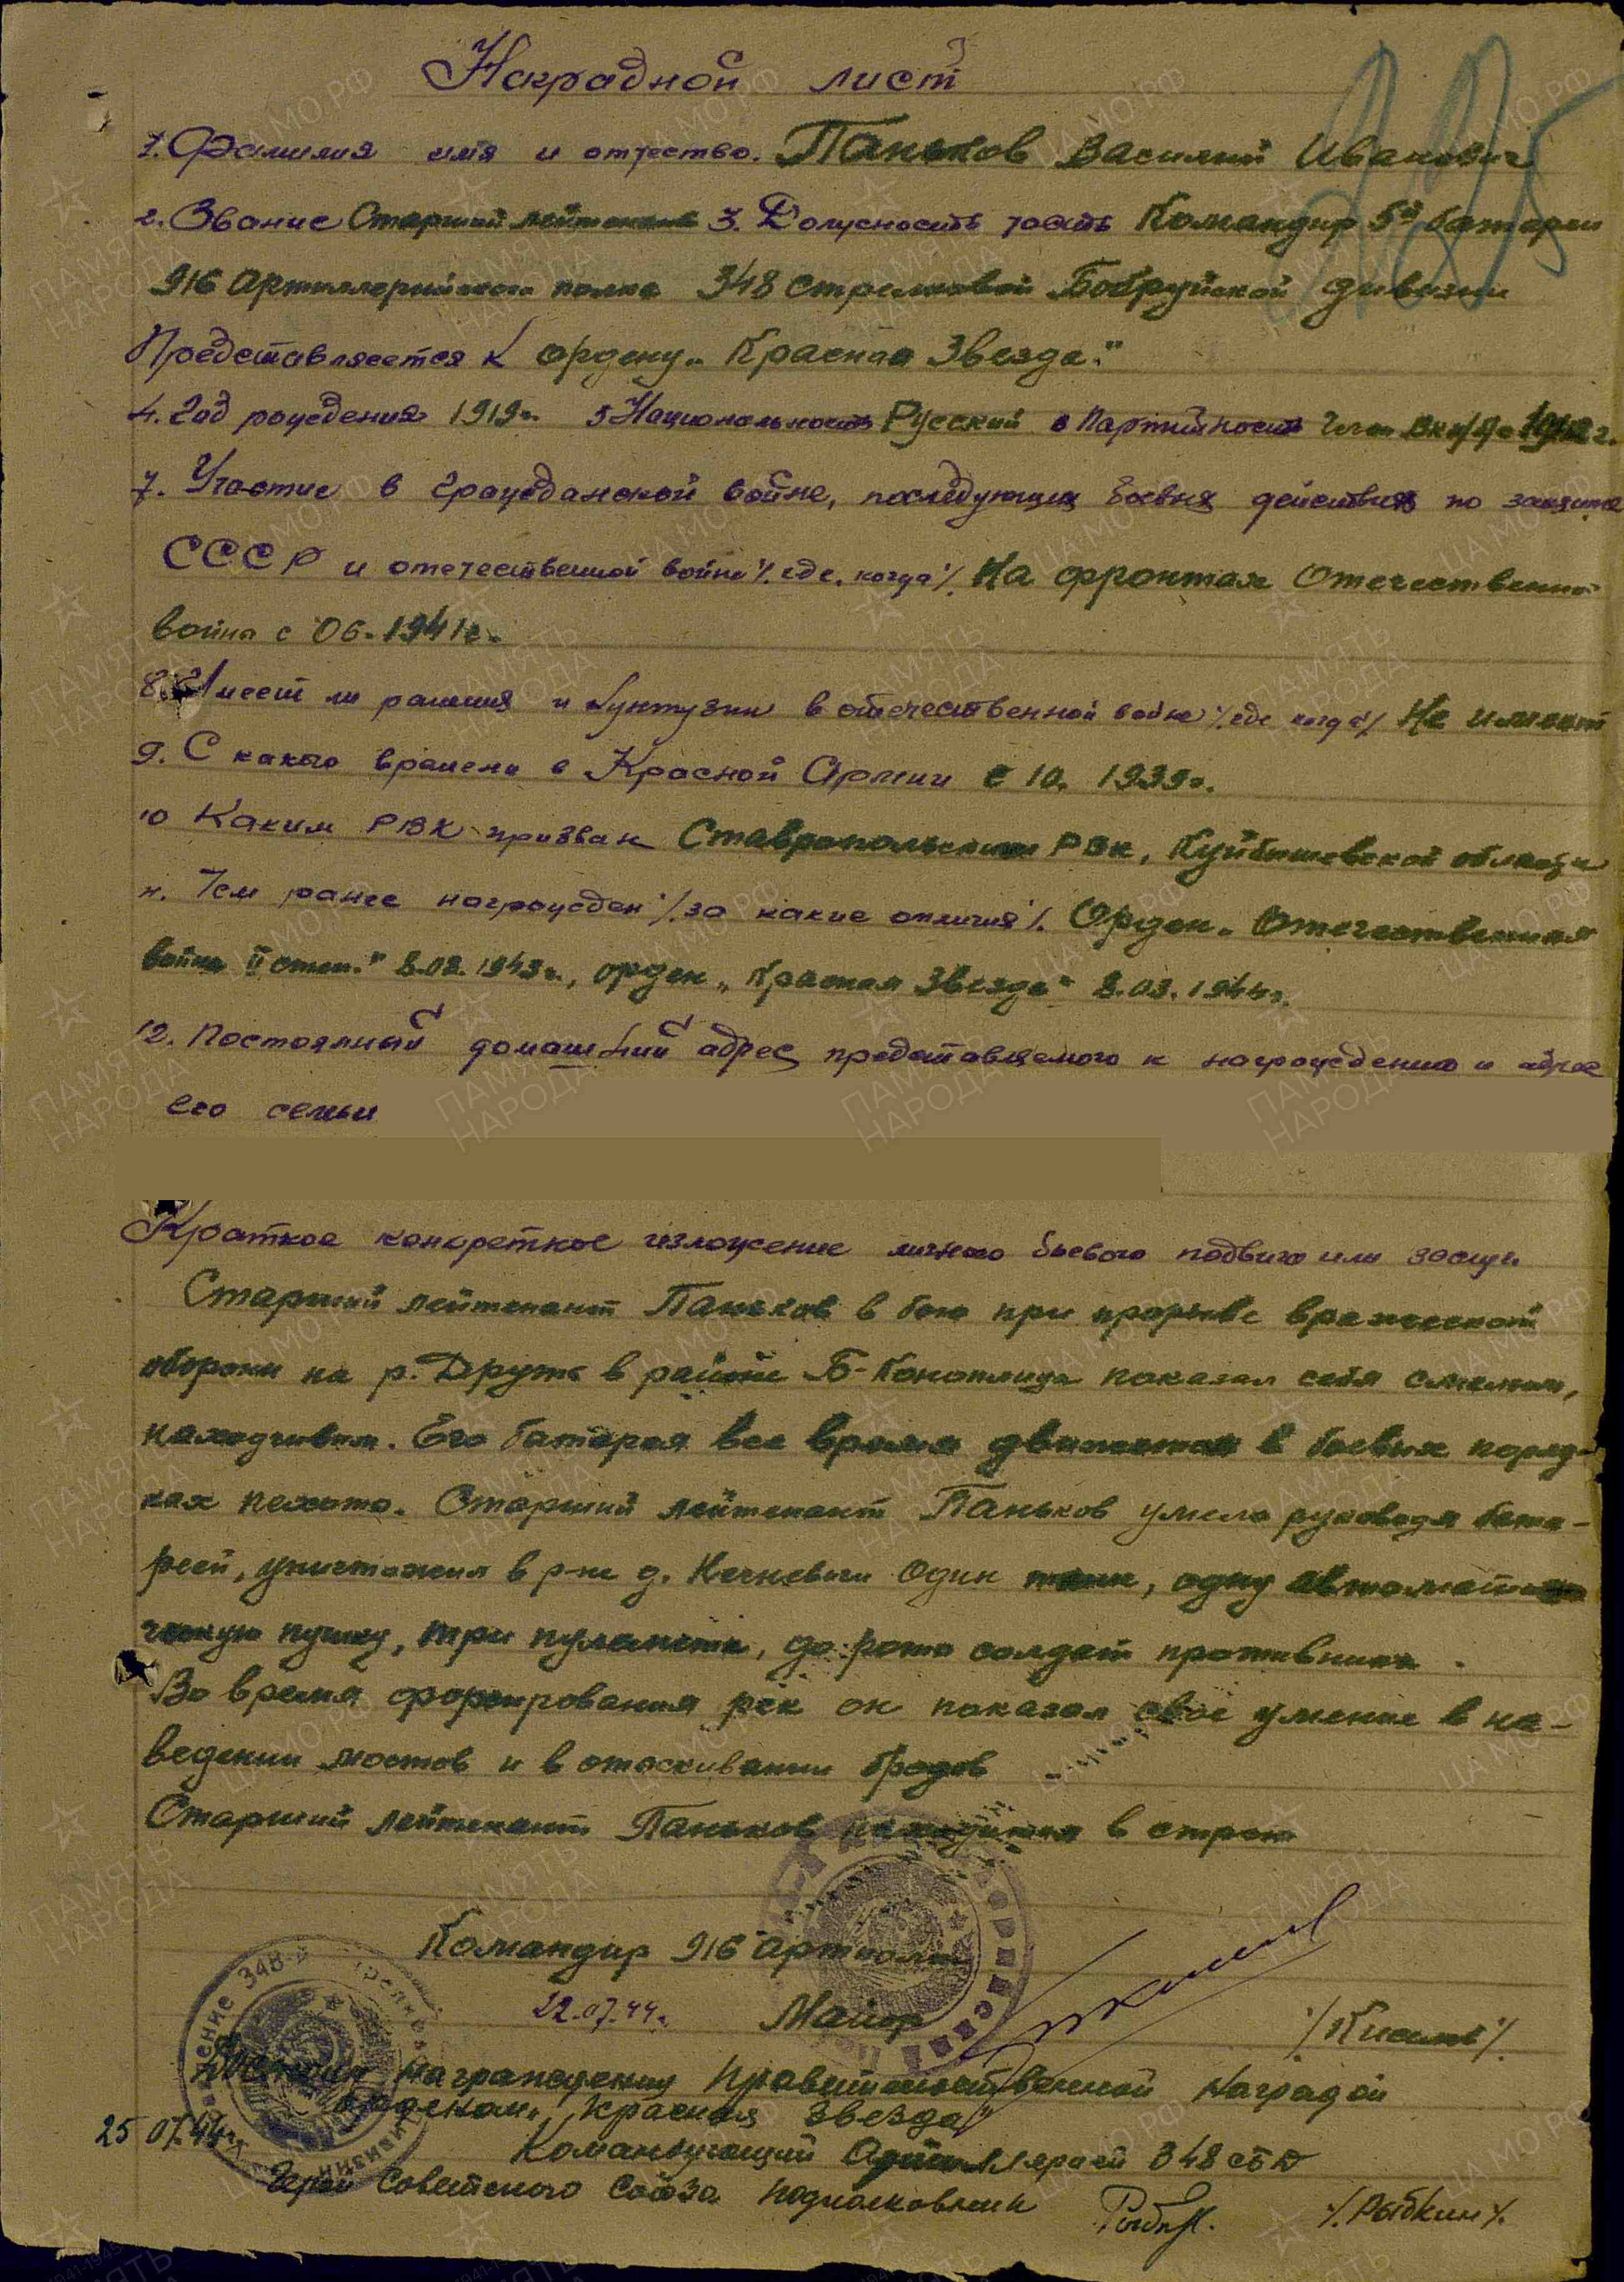 Наградной лист
1. Фамилия имя и отчество. Паньков Василий Иванович
2. Звание Старший лейтенант 3. Должность часть Командир 5й батареи
916 Артиллерийского полка 348 Стрелковой Бобруйской дивизии
Представляется к ордену „Красная Звезда."
4. Год рождения 1919г. 5 Национальность Русский 6 Партийность Член ВКП/б/ с 1942г.
7. Участие в гражданской войне, последующих боевых действиях по защите
СССР и отечественной войне /. где, когда /. На фронтах Отечественной
война с 06.1941г.
8. Имеет ли ранения и контузии в отечественной войне /. где когда /. Не имеет
9. С какого времени в Красной Армии с 10. 1939г.
10 Каким РВК призван Ставропольским РВК, Куйбышевской области
11. Чем ранее награжден /. за какие отличия /. Орден „Отечественная
война II степ." 8.02.1943г., орден „Красная Звезда" 8.03.1944г.
12. Постоянный домашний адрес представляемого к награждению и адрес
его семьи
Краткое конкретное изложение личного боевого подвига или заслуг
Старший лейтенант Паньков в бою при прорыве вражеской
обороны на р. Друть в районе Б-Конотлица показал себя смелым,
находчивым. Его батарея все время движется в боевых поряд-
ках пехоты. Старший лейтенант Паньков умело руководя бата-
реей, уничтожил в р-не д. один танк, одну автомати
ческую пушку, три пулемета, до роты солдат противника.
Во время форсирования рек он показал свое умение в на-
ведении мостов и в отыскивании бродов
Старший лейтенант Паньков находится в строю
Командир 916 артполка
22.07.44г. Майор /. /.
Достоин награждения Правительственной наградой
орденом „Красная звезда"
25 07.44г. Командующий Артиллерией 348 сбд
Герой Советского Союза подполковник /. Рыбкин /.
348-й
ЦА МО РФ
ПАМЯТЬ
НАРОДА